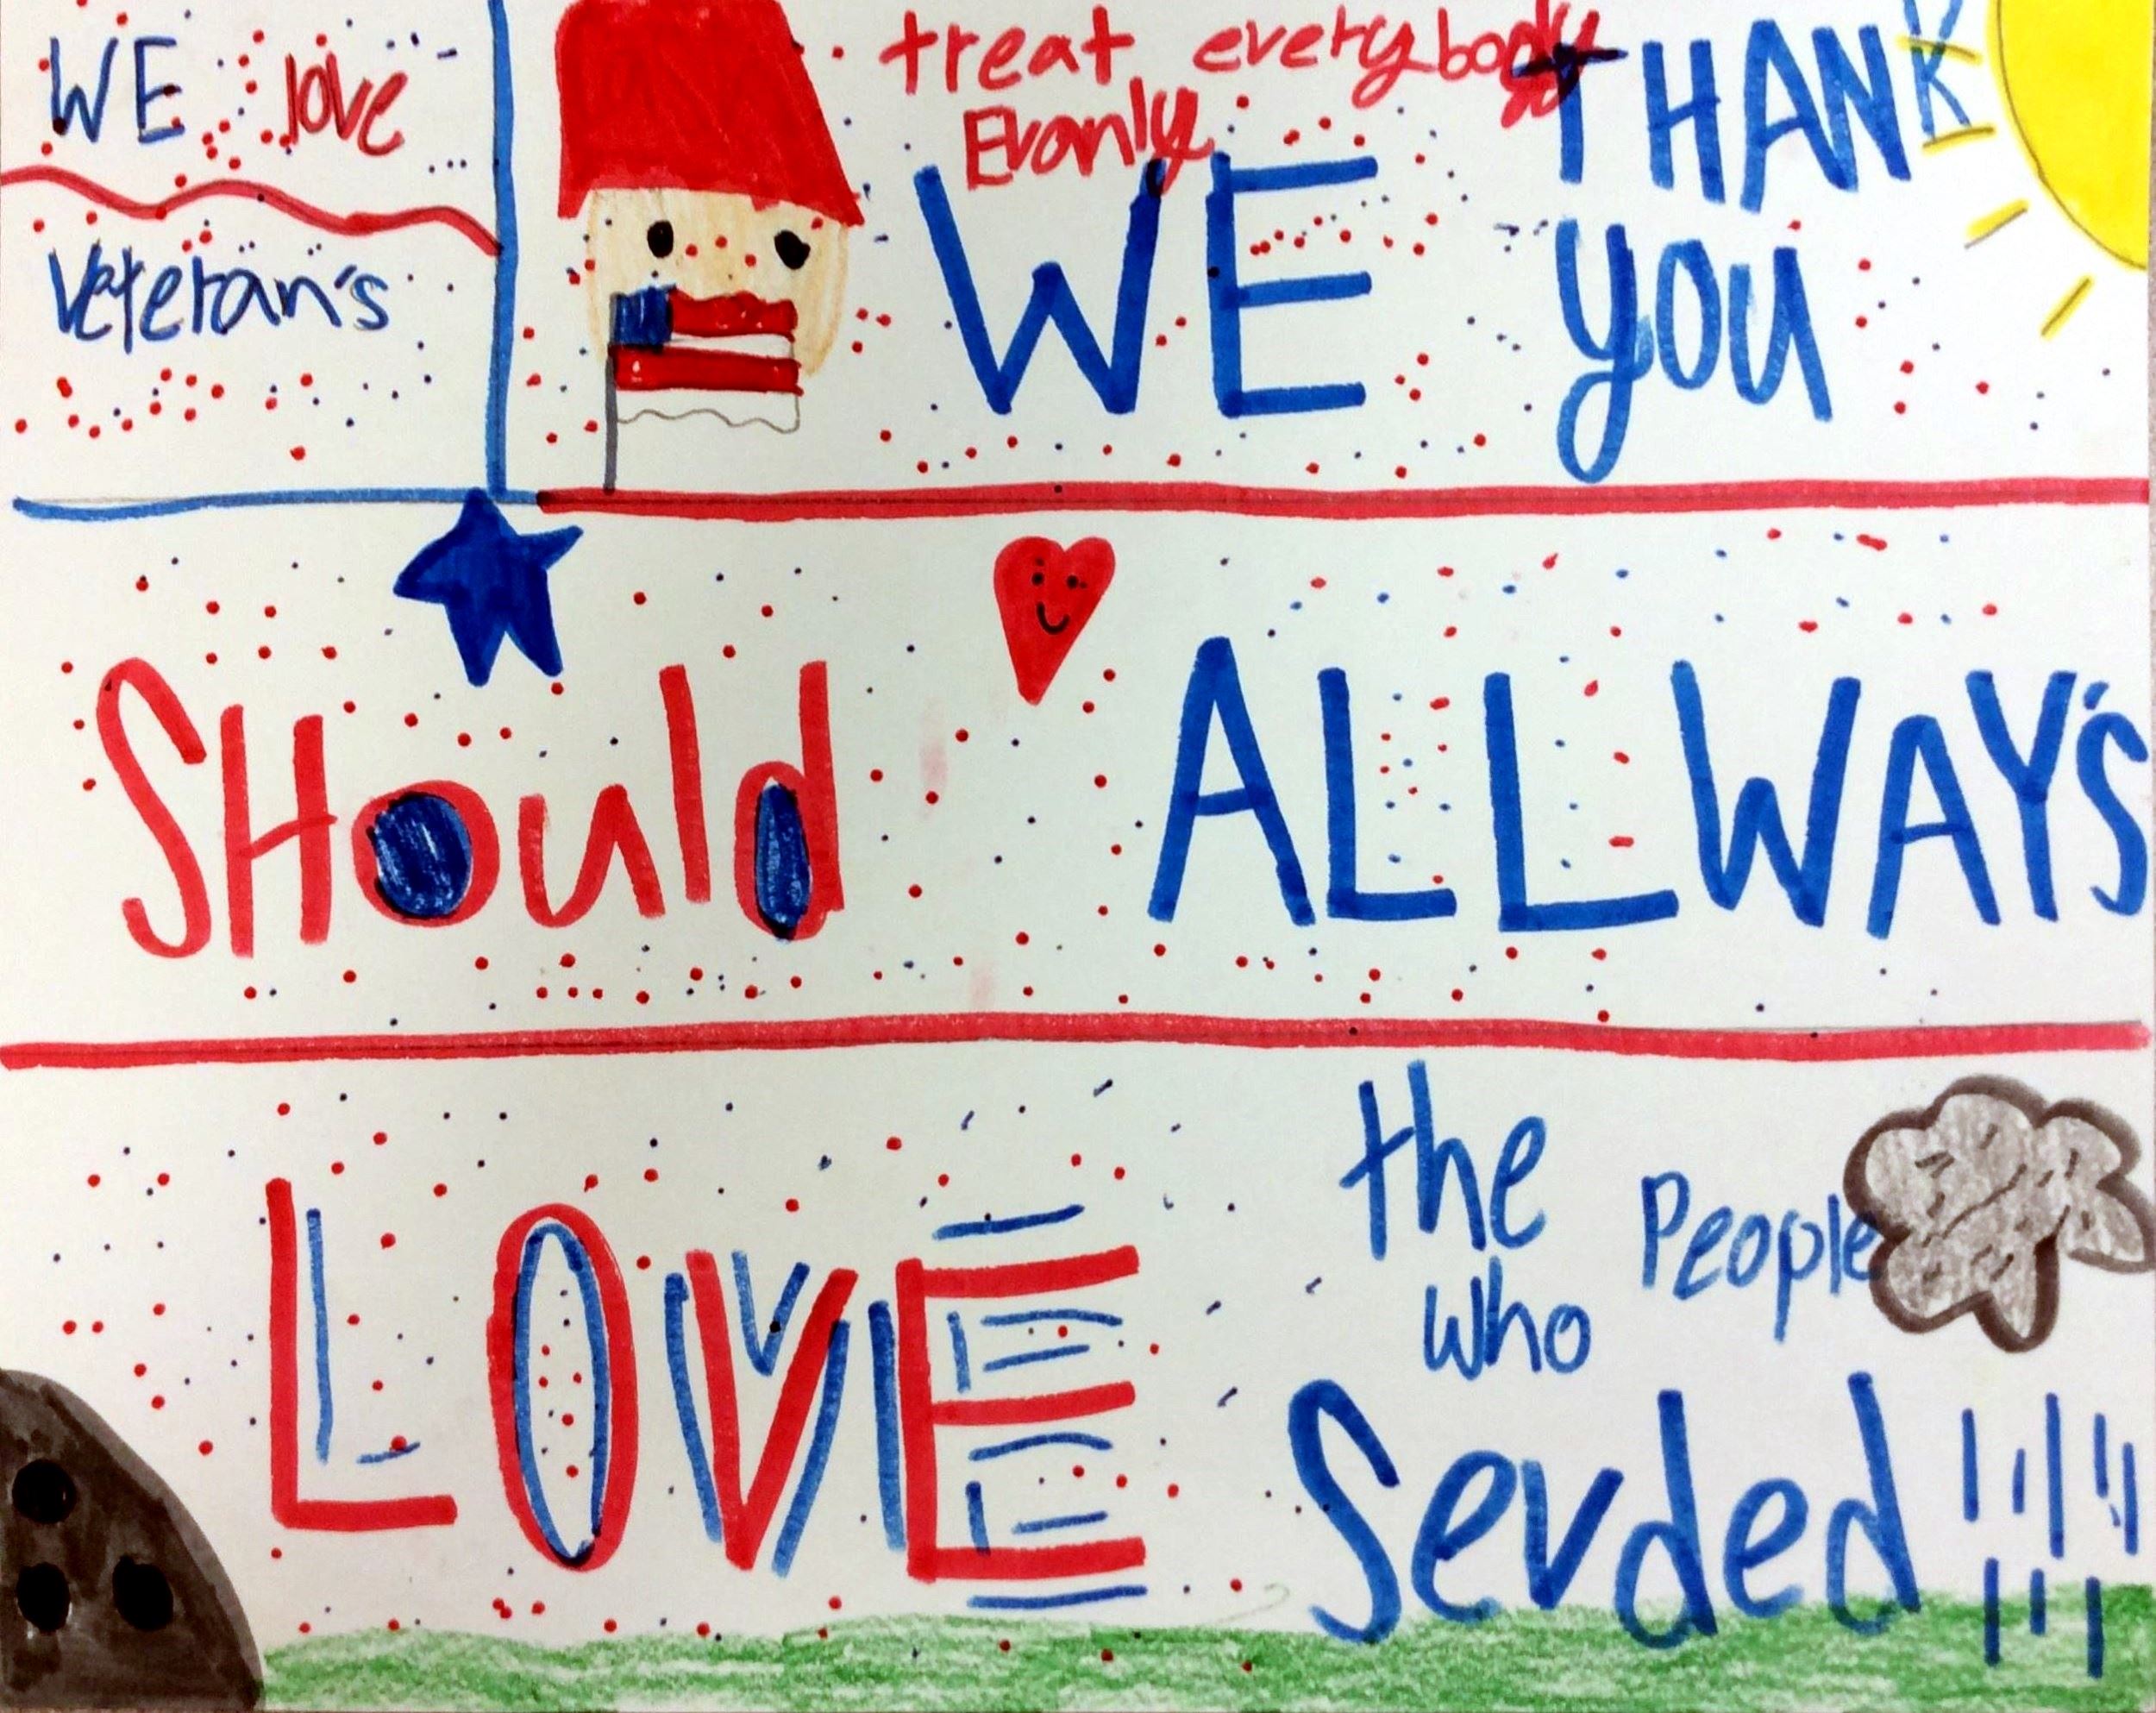 WE love
Veteran's
treat everybody
Evanly
WE
THANK
YOU
SHould ALLWAY'S
LOVE
the People
who
Sevded